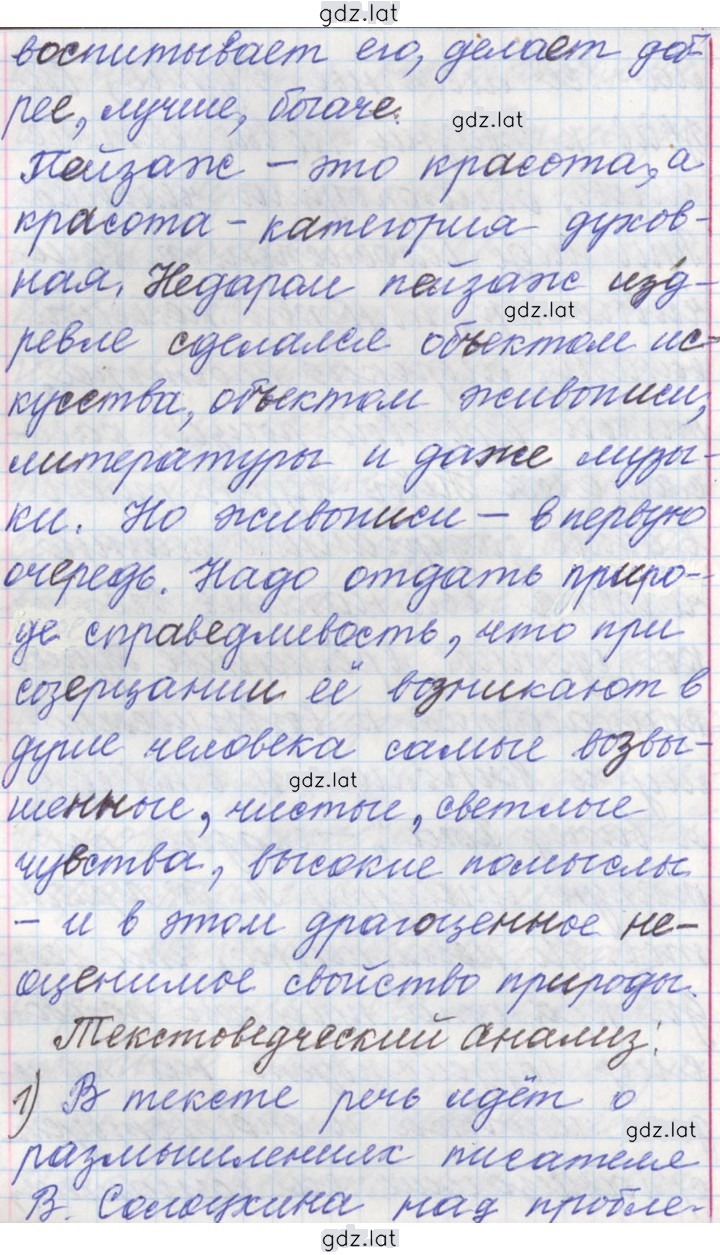 gdz.lat
воспитывает его, делает доб-
рее, лучше, богаче.
gdz.lat
Пейзаж – это красота, а
красота – категория духов-
ная. Недаром пейзаж изд-
gdz.lat
ревле сделался объектом ис-
кусства, объектом живописи,
литературы и даже музы-
ки. Но живописи – в первую
очередь. Надо отдать приро-
де справедливость, что при
созерцании её возникают в
душе человека самые возвы-
gdz.lat
шенные, чистые, светлые
чувства, высокие помыслы
– и в этом драгоценное не-
оценимое свойство природы.
Текстоведческий анализ:
1) В тексте речь идёт о
gdz.lat
размышлениях писателя
В. Солоухина над пробле-
gdz.lat